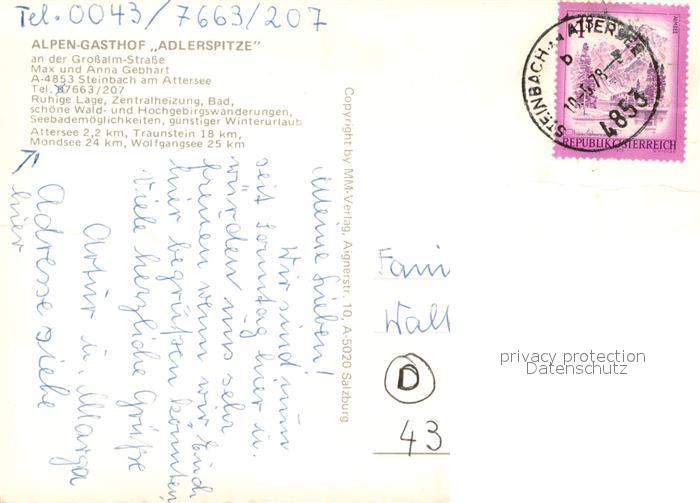 Tel. 0043/7663/207
ALPEN-GASTHOF „ADLERSPITZE"
an der Großalm-Straße
Max und Anna Gebhart
A-4853 Steinbach am Attersee
Tel. 07663/207
Ruhige Lage, Zentralheizung, Bad,
schöne Wald- und Hochgebirgswanderungen,
Seebademöglichkeiten, günstiger Winterurlaub
Attersee 2,2 km, Traunstein 18 km,
Mondsee 24 km, Wolfgangsee 25 km
Meine Lieben!
Wir sind nun
seit Sonntag hier u.
würden uns sehr
freuen wenn wir Euch
hier begrüßen könnten.
Viele herzliche Grüße
Artur u. Marga
Adresse siehe
hier
Copyright by MM-Verlag, Aignerstr. 10, A-5020 Salzburg
STEINBACH AM ATTERSEE
b
4853
ALMSEE
REPUBLIK ÖSTERREICH
Fami
Walt
D
43
privacy protection
Datenschutz